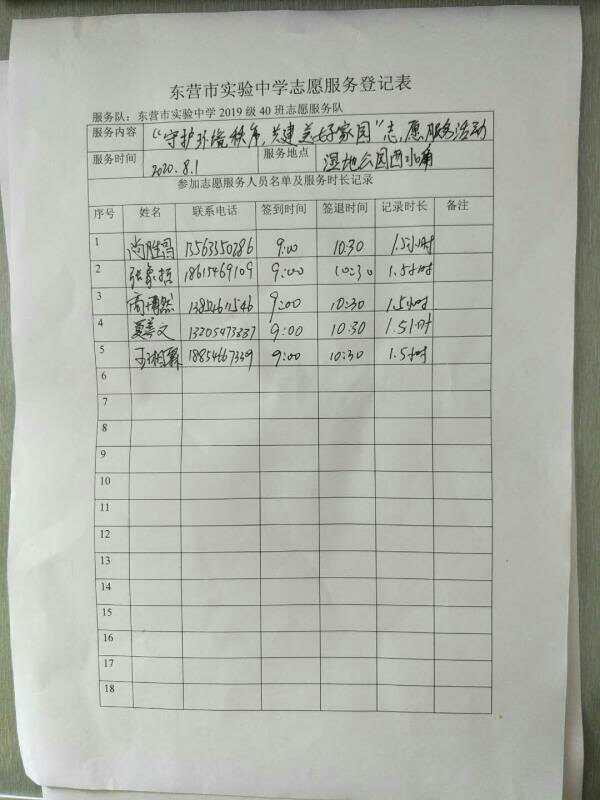 东营市实验中学志愿服务登记表
服务队：东营市实验中学 2019 级 40 班志愿服务队
服务内容 “守护环境秩序，共建美好家园”志愿服务活动
服务时间 2020.8.1 服务地点 湿地公园西北角
参加志愿服务人员名单及服务时长记录
序号 姓名 联系电话 签到时间 签退时间 记录时长 备注
1 9:00 10:30 1.5小时
2 张家哲 18615469109 9:00 10:30 1.5小时
3 9:00 10:30 1.5小时
4 9:00 10:30 1.5小时
5 18854667339 9:00 10:30 1.5小时
6
7
8
9
10
11
12
13
14
15
16
17
18